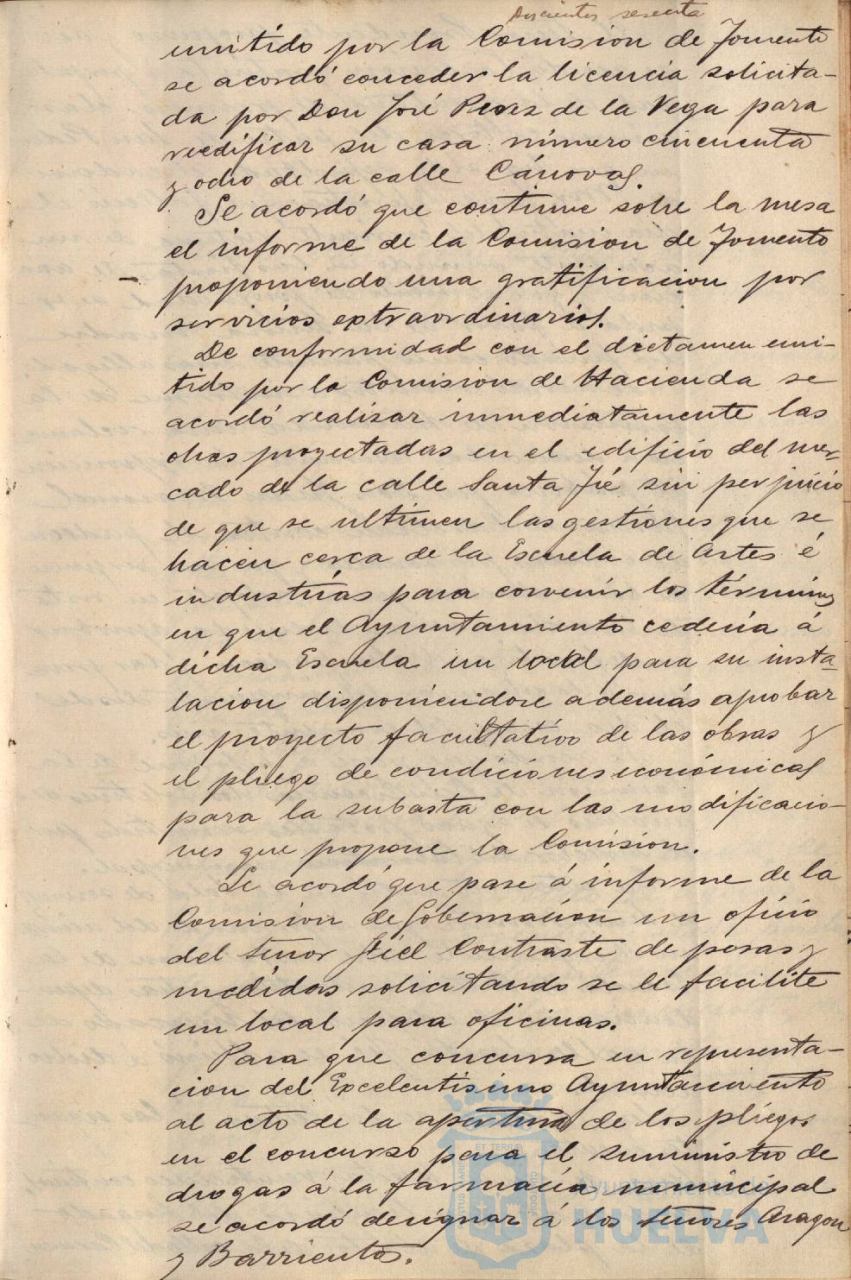 Doscientos sesenta
emitido por la Comision de Fomento
se acordó conceder la licencia solicita-
da por Don José Perez de la Vega para
reedificar su casa número cincuenta
y ocho de la calle Cánovas.
Se acordó que continue sobre la mesa
el informe de la Comision de Fomento
proponiendo una gratificacion por
servicios extraordinarios.
De conformidad con el dictamen emi-
tido por la Comision de Hacienda se
acordó realizar inmediatamente las
obras proyectadas en el edificio del mer-
cado de la calle Santa Fé sin perjuicio
de que se ultimen las gestiones que se
hacen cerca de la Escuela de Artes é
industrias para convenir los términos
en que el Ayuntamiento cederia á
dicha Escuela un local para su insta-
lacion disponiendose además aprobar
el proyecto facultativo de las obras y
el pliego de condiciones económicas
para la subasta con las modificacio-
nes que propone la Comision.
Se acordó que pase á informe de la
Comision de Gobernacion un oficio
del señor Fiel Contraste de pesas y
medidas solicitando se le facilite
un local para oficinas.
Para que concurra en representa-
cion del Excelentisimo Ayuntamiento
al acto de la apertura de los pliegos
en el concurso para el suministro de
drogas á la farmacia municipal
se acordó designar á los señores Aragon
y Barrientos.
HUELVA